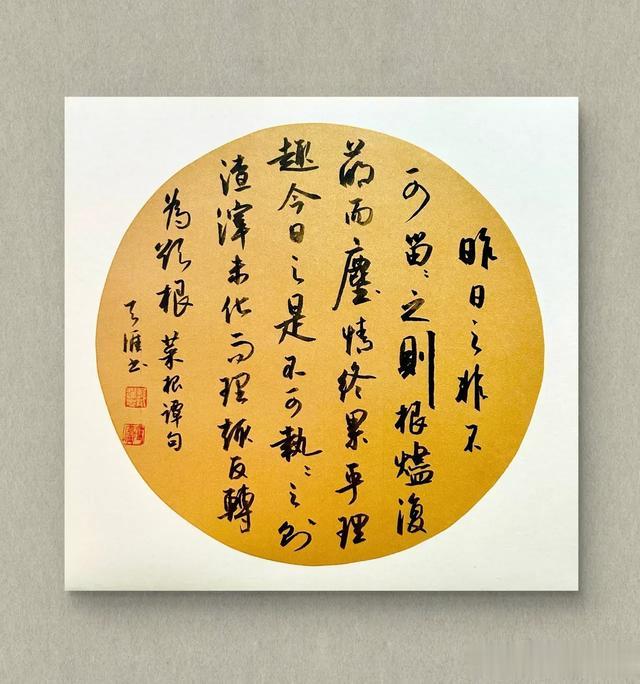 昨日之非不
可留〻之則根燼復
萌而塵情終累乎理
趣今日之是不可執〻之則
渣滓未化而理趣反轉
為欲根 菜根譚句
天涯书